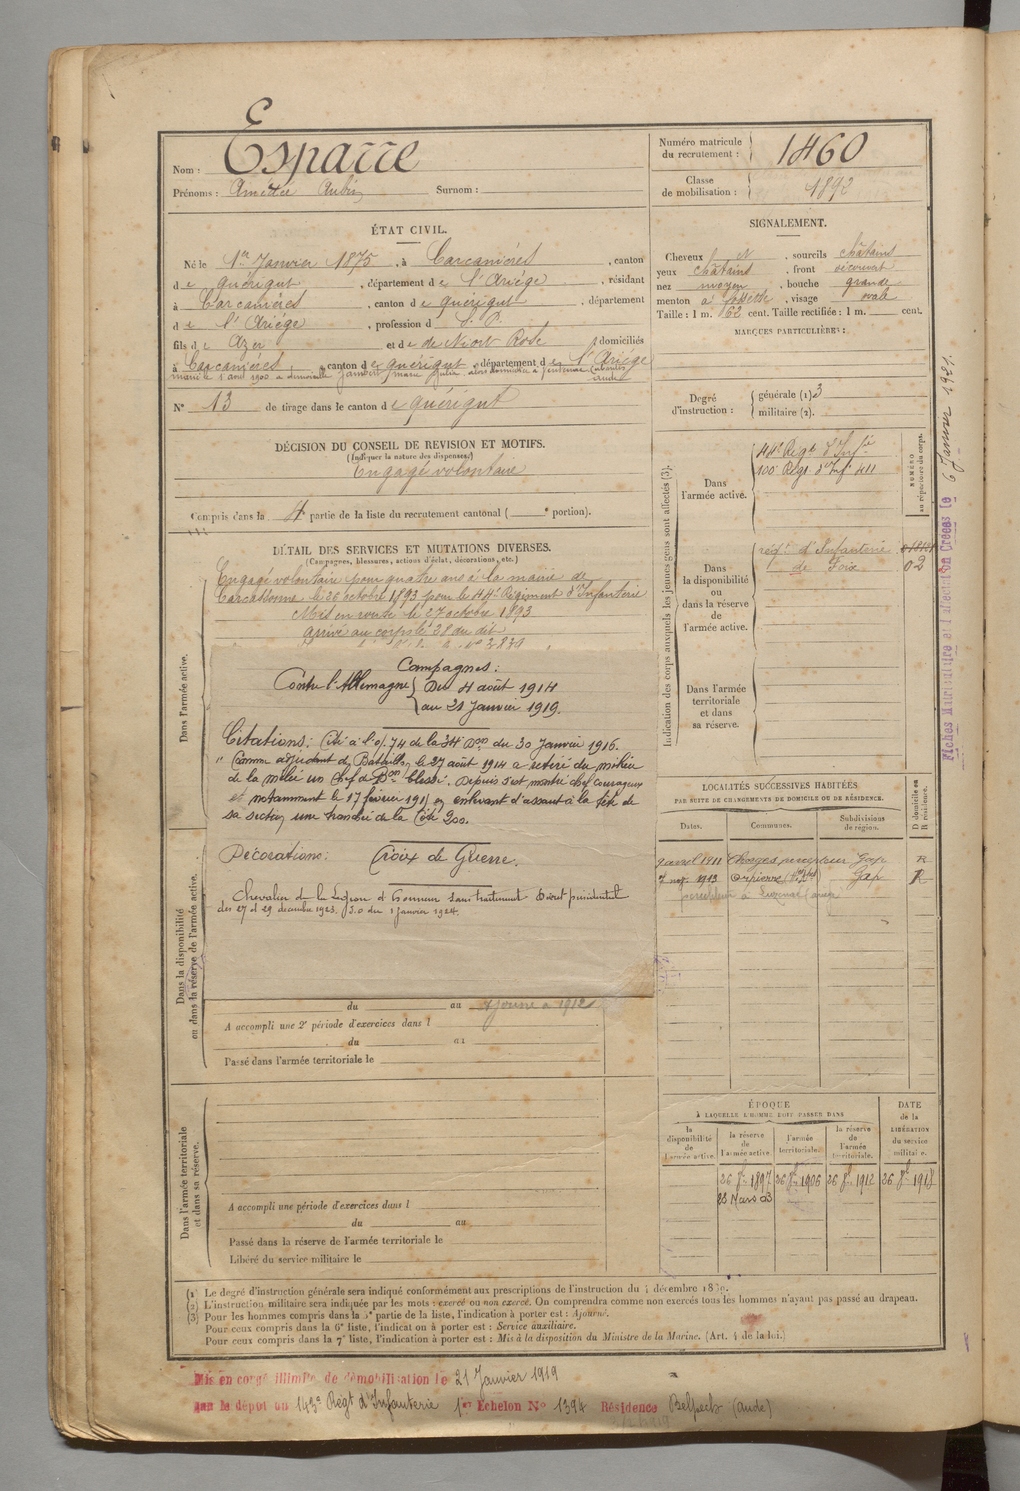 Nom : Esparre
Prénoms : Amédée Aubin Surnom :
Numéro matricule du recrutement : 1460
Classe de mobilisation : 1892
ÉTAT CIVIL.
Né le 1er Janvier 1875, à Carcanières, canton
de Quérigut, département de l'Ariège, résidant
à Carcanières, canton de Quérigut, département
de l'Ariège, profession d
fils de Azer et de de Niort Rose domiciliés
à Carcanières, canton de Quérigut, département de l'Ariège
N° 13 de tirage dans le canton de Quérigut
SIGNALEMENT.
Cheveux, sourcils châtains
yeux châtains, front découvert
nez moyen, bouche grande
menton à fossette, visage ovale
Taille : 1 m. 62 cent. Taille rectifiée : 1 m. cent.
MARQUES PARTICULIÈRES :
Degré d'instruction : générale (1) 3
militaire (2).
DÉCISION DU CONSEIL DE REVISION ET MOTIFS.
(Indiquer la nature des dispenses.)
Engagé volontaire
Compris dans la 4e partie de la liste du recrutement cantonal ( e portion).
DÉTAIL DES SERVICES ET MUTATIONS DIVERSES.
(Campagnes, blessures, actions d'éclat, décorations, etc.)
Dans l'armée active.
Engagé volontaire pour quatre ans à la mairie de
Carcassonne le 26 octobre 1893 pour le 44e Régiment d'Infanterie
Mis en route le 27 octobre 1893
arrivé au corps le 28 du dit.
Campagnes :
Contre l'Allemagne Du 4 août 1914
au 21 Janvier 1919.
Citations : Cité à l'o/ 74 de la 34e Don du 30 Janvier 1916.
" Comme adjudant de Bataillon, le 27 août 1914 a retiré du milieu
de la mêlée un Chef de Bon blessé. Depuis s'est montré chef courageux
et notamment le 17 février 1915 en enlevant d'assaut à la tête de
sa section une tranchée de la Côte 200.
Décorations : Croix de Guerre.
Chevalier de la Légion d'Honneur sans traitement Décret présidentiel
des 27 et 29 décembre 1923. J.O du 1 janvier 1924.
Dans la disponibilité
ou dans la réserve de l'armée active.
du au
A accompli une 2e période d'exercices dans l
du au
Passé dans l'armée territoriale le
Dans l'armée territoriale
et dans sa réserve.
A accompli une période d'exercices dans l
du au
Passé dans la réserve de l'armée territoriale le
Libéré du service militaire le
Indication des corps auxquels les jeunes gens sont affectés (3).
NUMÉRO
au répertoire du corps.
Dans l'armée active.
44e Régt d'Infie
100e Régt d'Inf
Dans la disponibilité ou dans la réserve de l'armée active.
régt d'Infanterie
de Foix
02
Dans l'armée territoriale et dans sa réserve.
Fiches Matriculaire et d'affectation Créées le 6 Janvier 1921.
LOCALITÉS SUCCESSIVES HABITÉES
PAR SUITE DE CHANGEMENTS DE DOMICILE OU DE RÉSIDENCE.
Dates. Communes. Subdivisions de région. D domicile ou R résidence.
9 avril 1911 Chorges percepteur Gap R
1913 Orpierre Gap R
ÉPOQUE
A LAQUELLE L'HOMME DOIT PASSER DANS
DATE de la LIBÉRATION du service militaire.
la disponibilité de l'armée active.
la réserve de l'armée active.
l'armée territoriale.
la réserve de l'armée territoriale.
26 8bre 1897 26 8bre 1906 26 8bre 1912 26 8bre 1918
23 Mars 03
(1) Le degré d'instruction générale sera indiqué conformément aux prescriptions de l'instruction du 4 décembre 1889.
(2) L'instruction militaire sera indiquée par les mots : exercé ou non exercé. On comprendra comme non exercés tous les hommes n'ayant pas passé au drapeau.
(3) Pour les hommes compris dans la 5e partie de la liste, l'indication à porter est : Ajourné.
Pour ceux compris dans la 6e liste, l'indication à porter est : Service auxiliaire.
Pour ceux compris dans la 7e liste, l'indication à porter est : Mis à la disposition du Ministre de la Marine. (Art. 4 de la loi.)
Mis en congé illimité de démobilisation le 21 Janvier 1919
par le dépôt du 143e Régt d'Infanterie 1er Echelon N° 1394 Résidence Belpech (Aude)